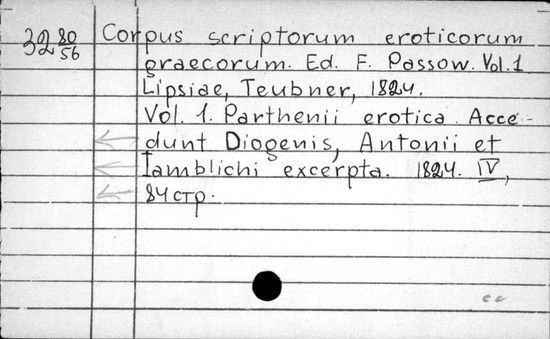 32 80/56 Corpus scriptorum eroticorum
graecorum. Ed. F. Passow. Vol. 1
Lipsiae, Teubner, 1824.
Vol. 1. Parthenii erotica. Acce-
dunt Diogenis, Antonii et
Iamblichi excerpta. 1824. IV,
84 стр.